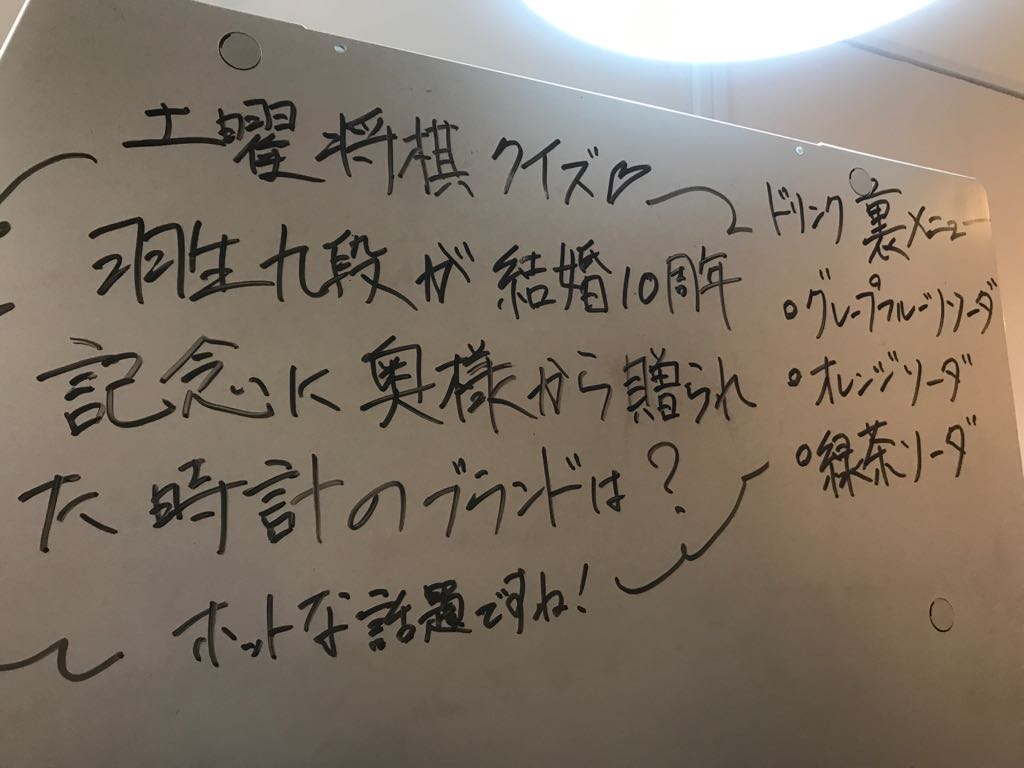 土曜将棋クイズ♡
羽生九段が結婚10周年
記念に奥様から贈られ
た時計のブランドは？
ホットな話題ですね！
ドリンク裏メニュー
○グレープフルーツソーダ
○オレンジソーダ
○緑茶ソーダ